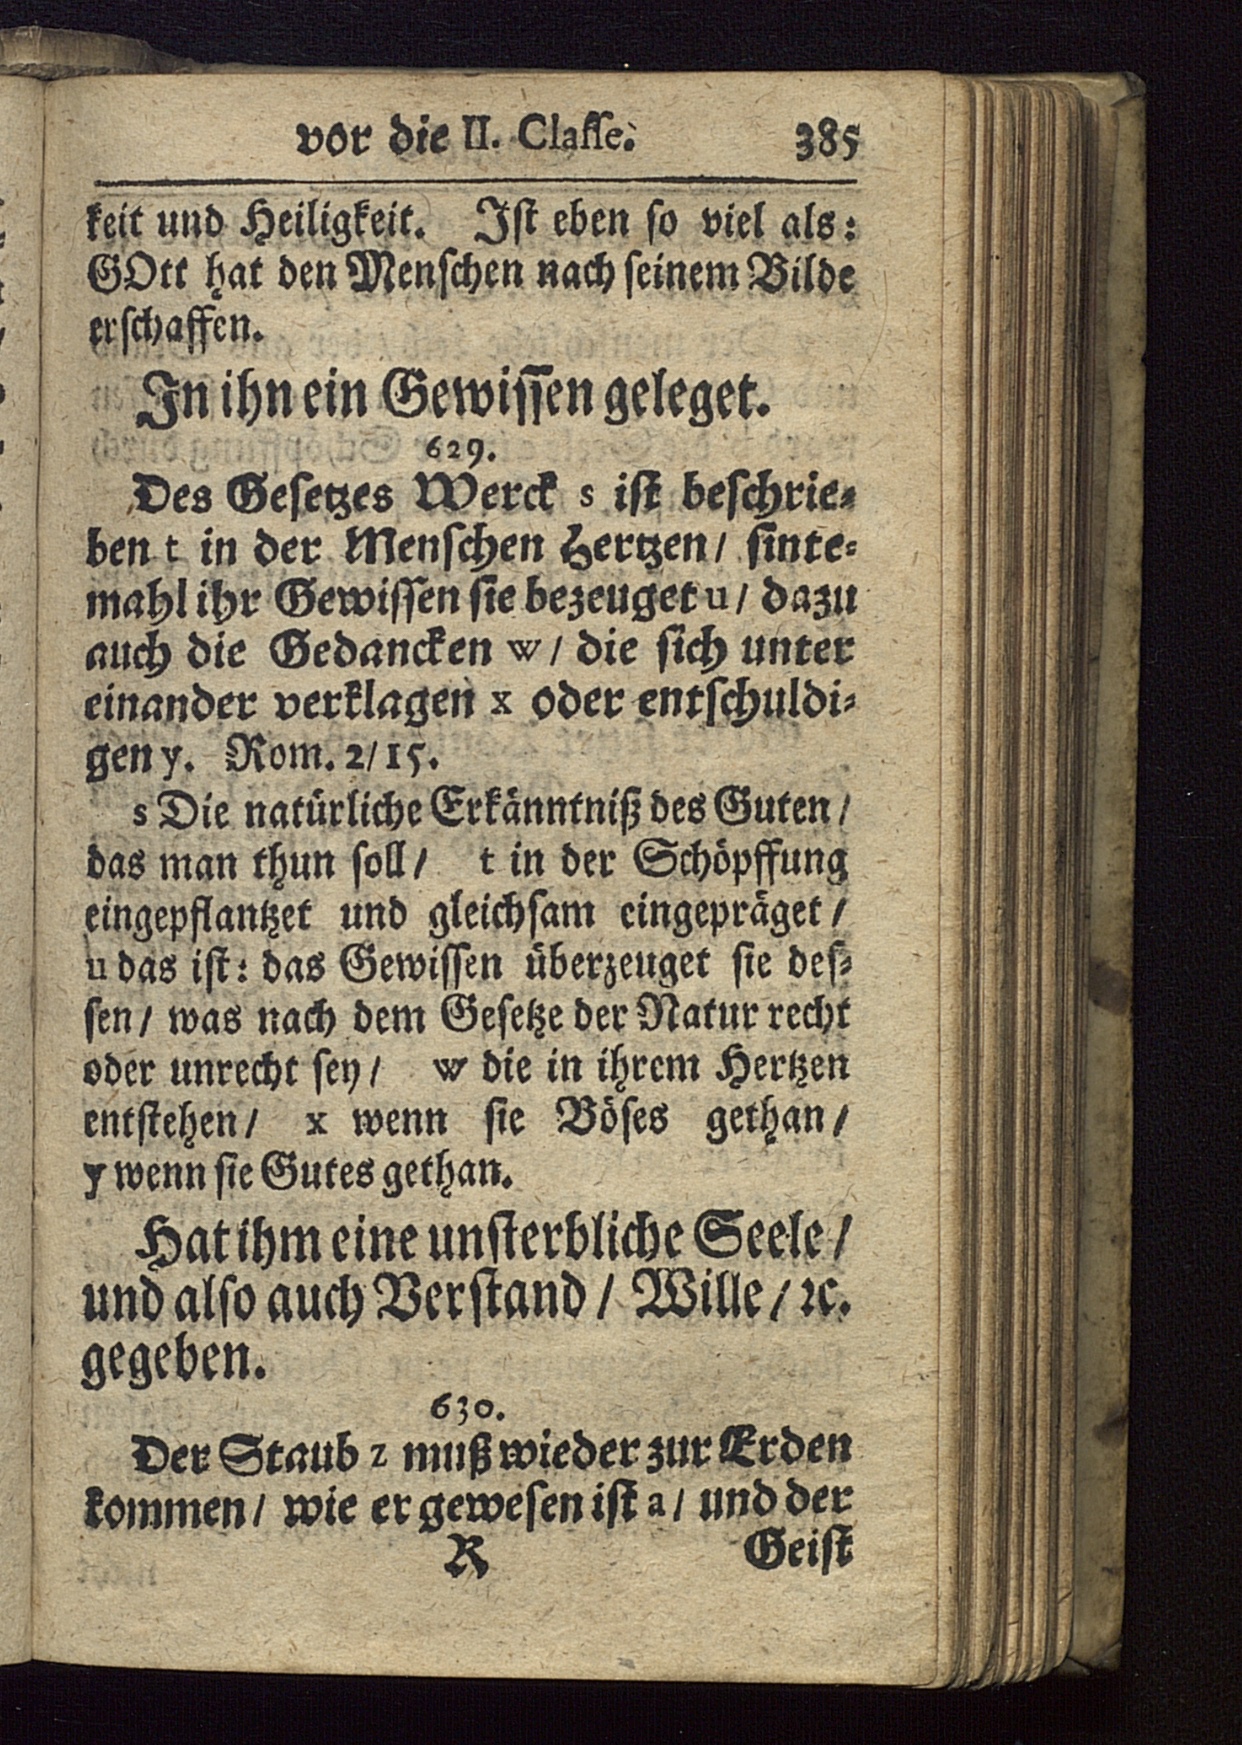 vor die II. Classe. 385
keit und Heiligkeit. Ist eben so viel als:
GOtt hat den Menschen nach seinem Bilde
erschaffen.
In ihn ein Gewissen geleget.
629.
Des Gesetzes Werck s ist beschrie-
ben t in der Menschen Hertzen/ sinte-
mahl ihr Gewissen sie bezeuget u/ dazu
auch die Gedancken w/ die sich unter
einander verklagen x oder entschuldi-
gen y. Rom. 2/15.
s Die natürliche Erkänntniß des Guten/
das man thun soll/ t in der Schöpffung
eingepflantzet und gleichsam eingepräget/
u das ist: das Gewissen überzeuget sie des-
sen/ was nach dem Gesetze der Natur recht
oder unrecht sey/ w die in ihrem Hertzen
entstehen/ x wenn sie Böses gethan/
y wenn sie Gutes gethan.
Hat ihm eine unsterbliche Seele/
und also auch Verstand/ Wille/ ꝛc.
gegeben.
630.
Der Staub z muß wieder zur Erden
kommen/ wie er gewesen ist a/ und der
R Geist